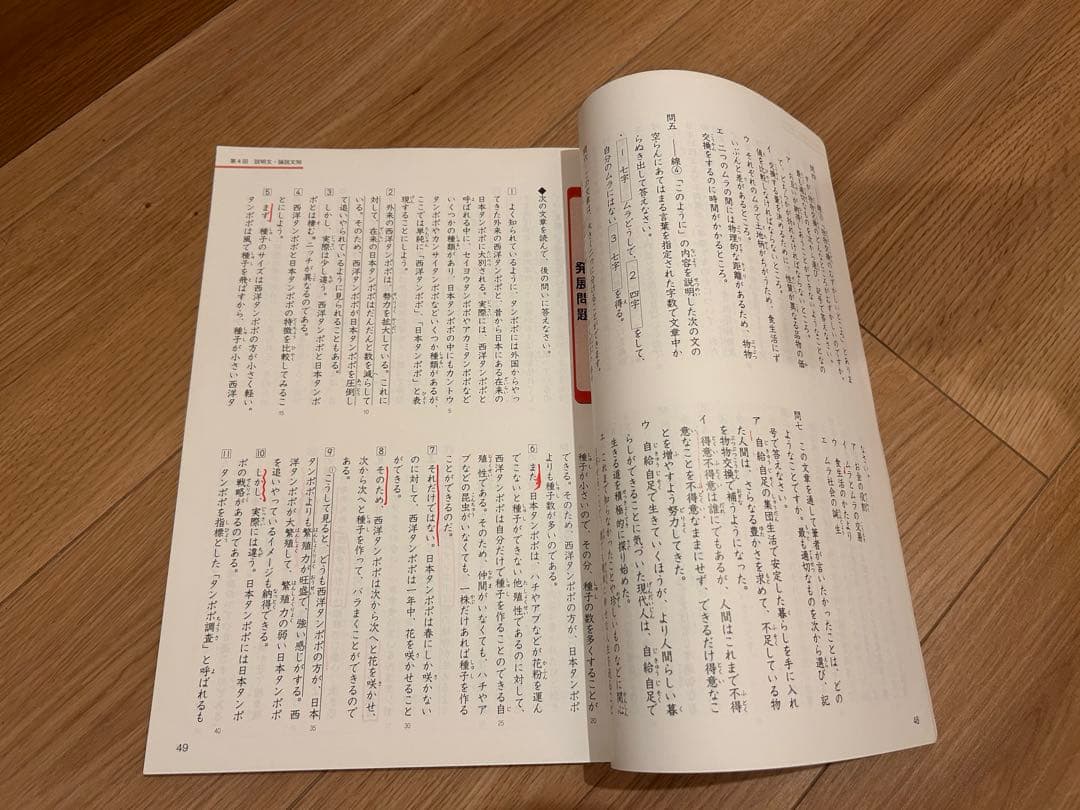 問五 ――線④「このように」の内容を説明した次の文の
空らんにあてはまる言葉を指定された字数で文章中か
らぬき出して答えなさい。
1 七字 ムラどうしで、 2 四字 をして、
自分のムラにはない 3 七字 を得る。
ウ それぞれのムラで土地柄がちがうため、食生活にず
いぶんと差があるところ。
エ 二つのムラの間には物理的な距離があるため、物物
交換をするのに時間がかかるところ。
ア お金の役割
イ ムラとムラの交易
ウ 食生活のかたより
エ ムラ社会の誕生
問七 この文章を通して筆者が言いたかったことは、どの
ようなことですか。最も適切なものを次から選び、記
号で答えなさい。
ア 自給自足の集団生活で安定した暮らしを手に入れ
た人間は、さらなる豊かさを求めて、不足している物
を物物交換で補うようになった。
イ 得意不得意は誰にでもあるが、人間はこれまで不得
意なことを不得意なままにせず、できるだけ得意なこ
とを増やすよう努力してきた。
ウ 自給自足で生きていくほうが、より人間らしい暮
らしができることに気づいた現代人は、自給自足で
生きる道を積極的に探り始めた。
48
第4回 説明文・論説文㈣
発展問題
◆次の文章を読んで、後の問いに答えなさい。
1 よく知られているように、タンポポには外国からやっ
てきた外来の西洋タンポポと、昔から日本にある在来の
日本タンポポに大別される。実際には、西洋タンポポと
呼ばれる中に、セイヨウタンポポやアカミタンポポなど
いくつかの種類があり、日本タンポポの中にもカントウ
タンポポやカンサイタンポポなどいくつか種類があるが、
ここでは単純に「西洋タンポポ」、「日本タンポポ」と表
現することにしよう。
2 外来の西洋タンポポは、勢力を拡大している。これに
対して、在来の日本タンポポはだんだんと数を減らして
いる。そのため、西洋タンポポが日本タンポポを圧倒し
て追いやられているように見られることもある。
3 しかし、実際は少し違う。西洋タンポポと日本タンポ
ポとは棲む。ニッチが異なるのである。
4 西洋タンポポと日本タンポポの特徴を比較してみるこ
とにしよう。
5 まず、種子のサイズは西洋タンポポの方が小さく軽い。
タンポポは風で種子を飛ばすから、種子が小さい西洋タ
種子が小さいので、その分、種子の数を多くすることが
できる。そのため、西洋タンポポの方が、日本タンポポ
よりも種子数が多いのである。
6 また、日本タンポポは、ハチやアブなどが花粉を運ん
でこないと種子ができない他殖性であるのに対して、
西洋タンポポは自分だけで種子を作ることのできる自
殖性である。そのため、仲間がいなくても、ハチやア
ブなどの昆虫がいなくても、一株だけあれば種子を作る
ことができるのだ。
7 それだけではない。日本タンポポは春にしか咲かない
のに対して、西洋タンポポは一年中、花を咲かせること
ができる。
8 そのため、西洋タンポポは次から次へと花を咲かせ、
次から次へと種子を作って、バラまくことができるので
ある。
9 こうして見ると、どうも西洋タンポポの方が、日本
タンポポよりも繁殖力が旺盛で、強い感じがする。西
洋タンポポが大繁殖して、繁殖力の弱い日本タンポポ
を追いやっているイメージも納得できる。
10 しかし、実際には違う。日本タンポポには日本タンポ
ポの戦略があるのである。
11 タンポポを指標とした「タンポポ調査」と呼ばれるも
5
10
15
20
25
30
35
40
49